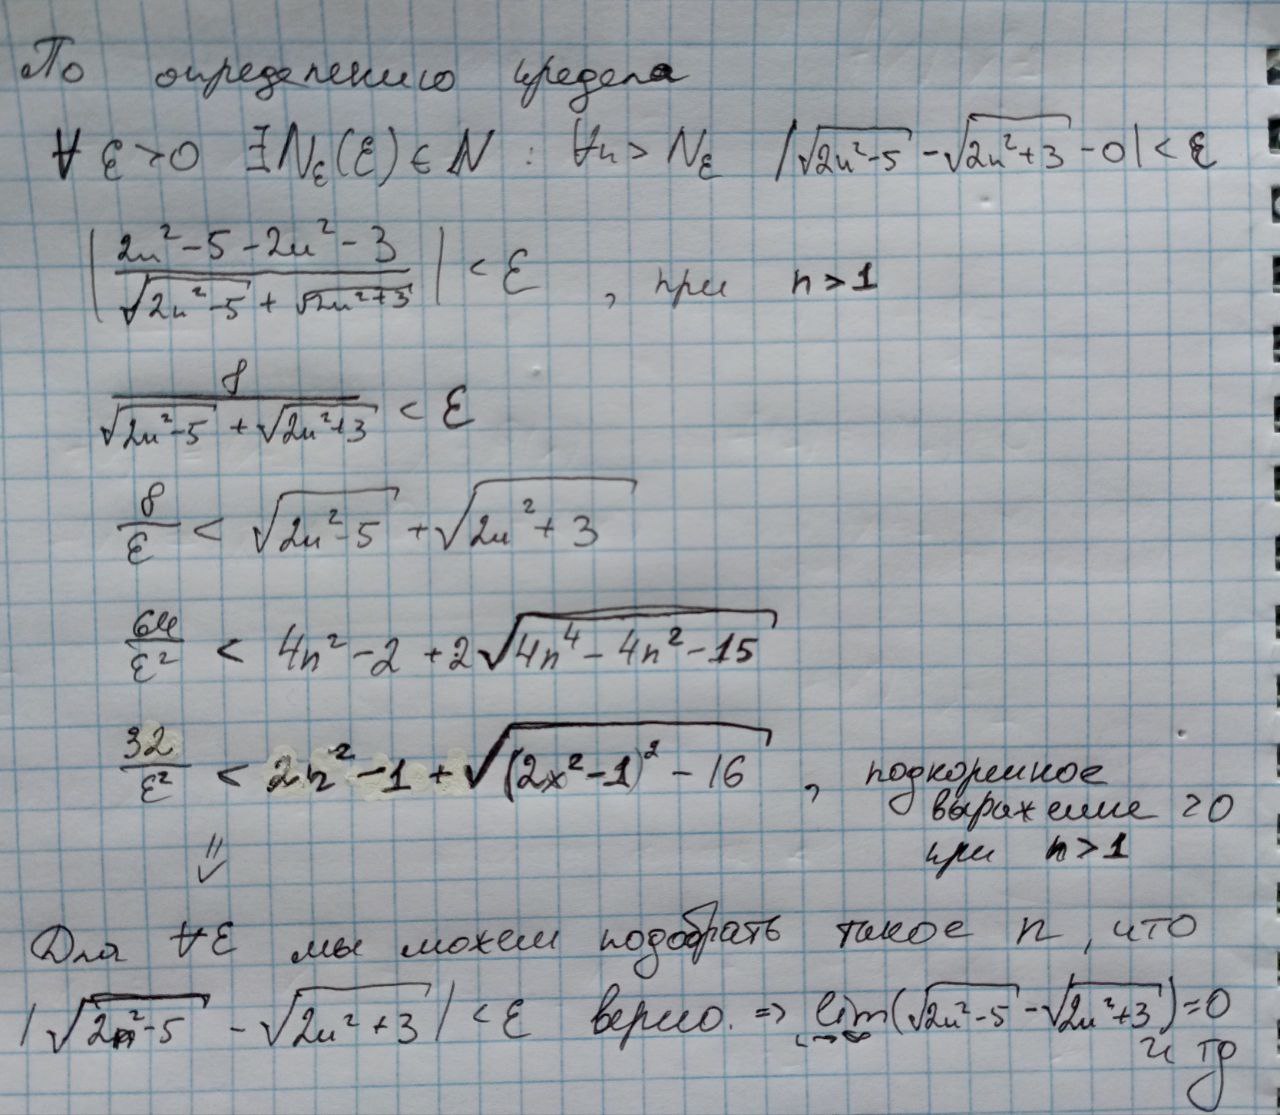 По определению предела
∀ ε > 0 ∃ N_ε(ε) ∈ N : ∀n > N_ε |√(2n²-5) - √(2n²+3) - 0| < ε
|(2n² - 5 - 2n² - 3)/(√(2n²-5) + √(2n²+3))| < ε , при n > 1
8/(√(2n²-5) + √(2n²+3)) < ε
8/ε < √(2n²-5) + √(2n²+3)
64/ε² < 4n² - 2 + 2√(4n⁴ - 4n² - 15)
32/ε² < 2n² - 1 + √((2x² - 1)² - 16) , подкоренное
выражение ≥ 0
при n > 1
⇓
Для ∀ε мы можем подобрать такое n, что
|√(2n²-5) - √(2n²+3)| < ε верно. ⇒ lim(√(2n²-5) - √(2n²+3)) = 0
n→∞
чтд